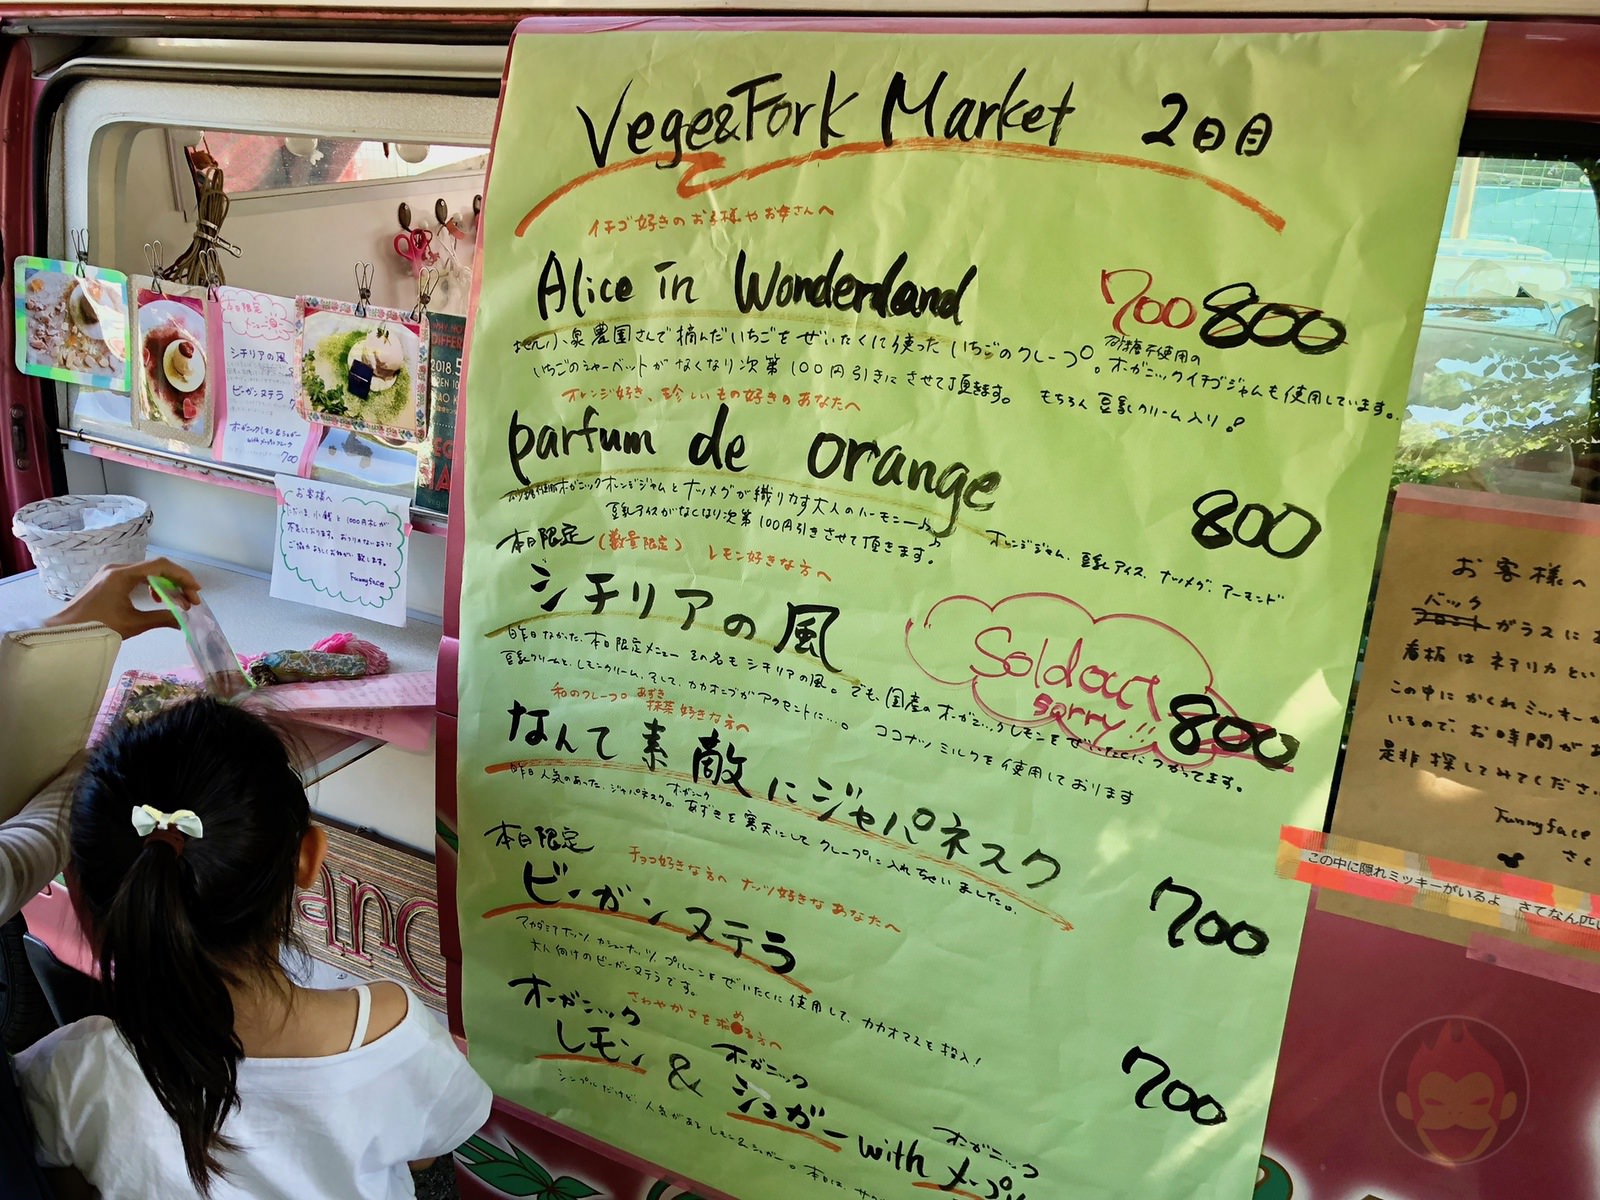 Vege&Fork Market 2日目
イチゴ好きのお子様やお母さんへ
Alice in Wonderland
700 800
小泉農園さんで摘んだいちごをぜいたくに使ったいちごのクレープ。砂糖不使用のオーガニックイチゴジャムも使用しています。
いちごのシャーベットがなくなり次第100円引きにさせて頂きます。 もちろん豆乳クリーム入り!
オレンジ好き、珍しいもの好きのあなたへ
parfum de orange
800
オーガニックオレンジジャムとナツメグが織りなす大人のハーモニー♪
豆乳アイスがなくなり次第100円引きさせて頂きます♪
オレンジジャム、豆乳アイス、ナツメグ、アーモンド
本日限定 (数量限定) レモン好きな方へ
シチリアの風
Soldout
sorry!!!
800
昨日なかった、本日限定メニューその名もシチリアの風。でも、国産のオーガニックレモンをぜいたくにつかってます。
豆乳クリームと、レモンクリーム、そして、カカオニブがアクセントに…。 ココナツミルクを使用しております
和のクレープ。あずき抹茶好きな方へ
なんて素敵にジャパネスク
700
昨日人気のあった、ジャパネスク。オーガニックあずきを寒天にしてクレープに入れちゃいました。
本日限定
チョコ好きな方へ ナッツ好きなあなたへ
ビーガンヌテラ
700
マカダミアナッツ、カシューナッツ、プルーンをぜいたくに使用して、カカオマスを投入!
大人向けのビーガンヌテラです。
さわやかさを求める方へ
オーガニック
レモン & オーガニック
シュガー with オーガニック
メープル
シンプルだけど、人気がある レモン&シュガー。
本日限定
メニュー
シチリアの風
ビーガンヌテラ
オーガニックレモン&シュガー
withメープル
700
お客様へ
ただいま小銭と1000円札が
不足しております。おつりのないように
ご協力よろしくお願い致します。
Funnyface
2018.5
お客様へ
バック
フロントガラスにあ
看板はネアリカとい
この中にかくれミッキーが
いるので、お時間があ
是非探してみてくださ
Funnyface
さく
この中に隠れミッキーがいるよ さてなん匹い